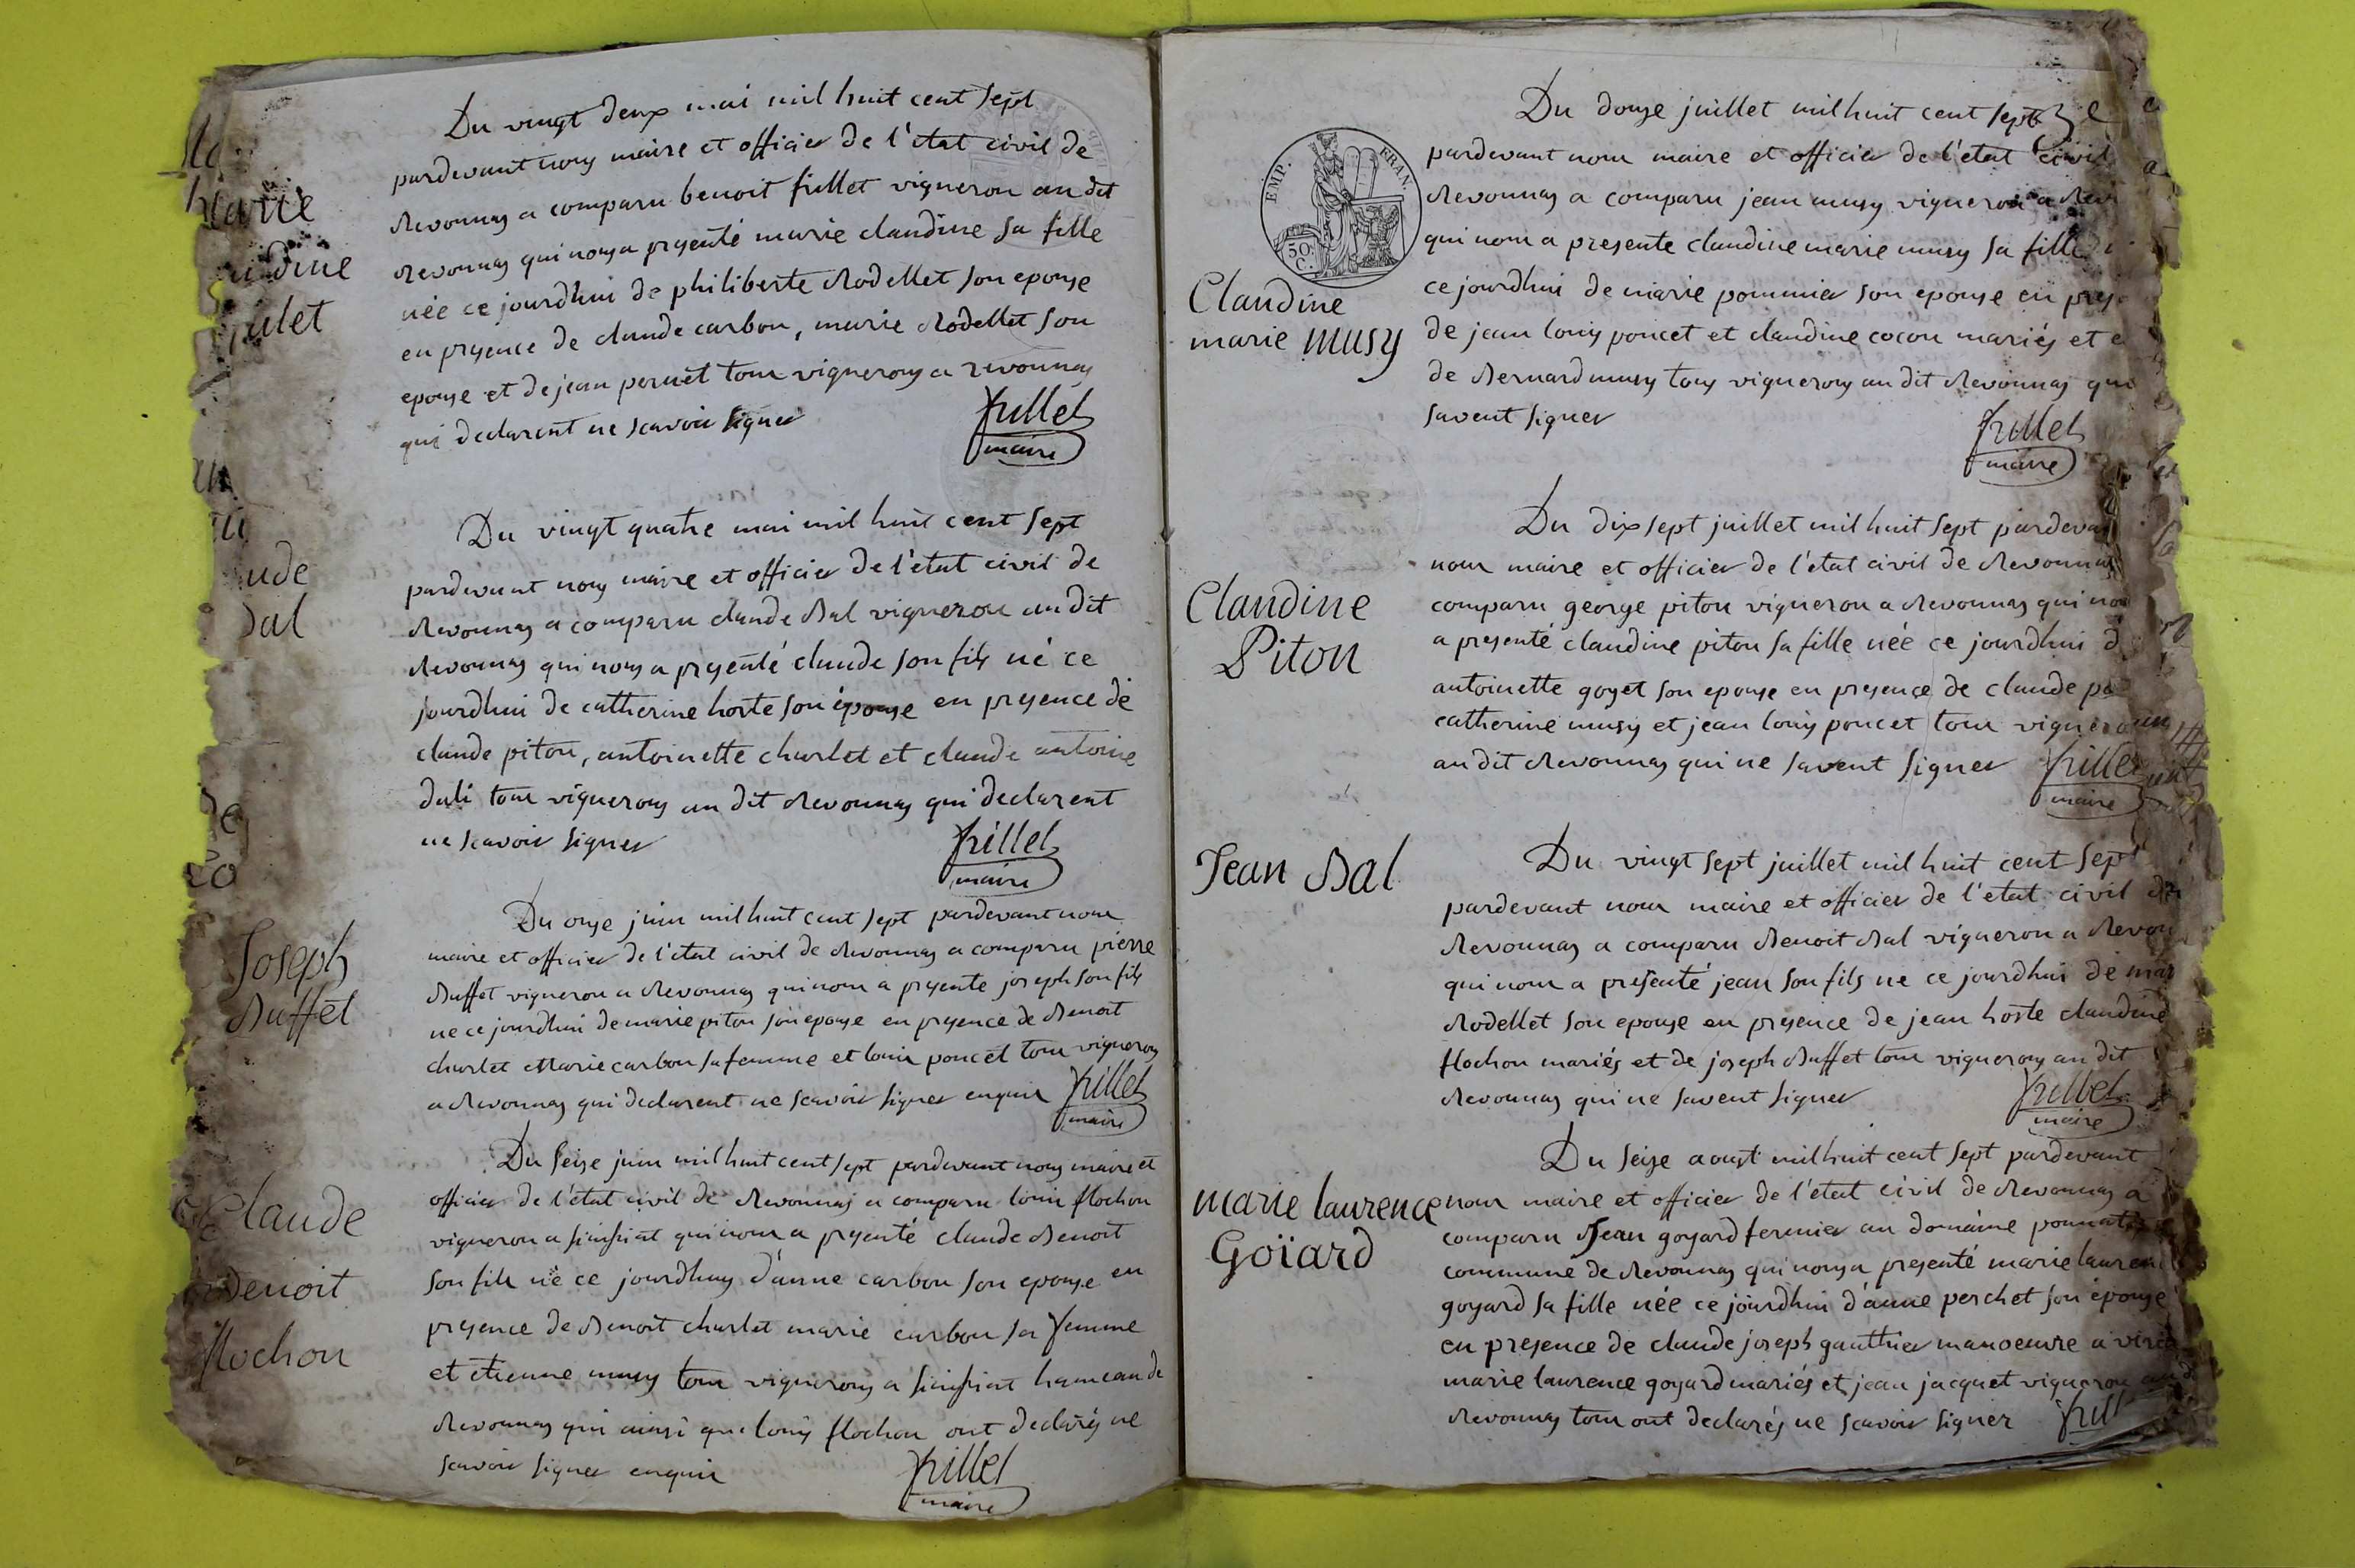 Marie
udine
julet
Du vingt deux mai mil huit cent sept
pardevant nous maire et officier de l'état civil de
Revonnas a comparu benoit fillet vigneron au dit
Revonnas qui nous a presenté marie claudine sa fille
née ce jourdhui de philiberte Rodellet son epouse
en presence de claude carbon, marie Rodellet son
epouse et de jean pernet tous vignerons a revonnas
qui declarent ne scavoir signer
fillet
maire
ude
Bal
Du vingt quatre mai mil huit cent sept
pardevant nous maire et officier de l'état civil de
Revonnas a comparu claude Bal vigneron au dit
Revonnas qui nous a presenté claude son fils né ce
jourdhui de catherine hoste son épouse en presence de
claude piton, antoinette charlet et claude antoine
duli tous vignerons au dit Revonnas qui declarent
ne scavoir signer
fillet
maire
Joseph
Buffet
Du onze juin mil huit cent sept pardevant nous
maire et officier de l'état civil de Revonnas a comparu pierre
Buffet vigneron a Revonnas qui nous a presente joseph son fils
ne ce jourdhui de marie piton son epouse en presence de Benoit
charlet Marie carbon sa femme et louis poncet tous vignerons
a Revonnas qui declarent ne scavoir signer enquis
fillet
maire
Claude
Benoit
flochon
Du seize juin mil huit cent sept pardevant nous maire et
officier de l'état civil de Revonnas a comparu louis flochon
vigneron a sinsiat qui nous a presenté claude Benoit
son fils né ce jourdhuy d'anne carbon son epouse en
presence de Benoit charlet marie carbon sa femme
et etienne musy tous vignerons a sinsiat hameau de
Revonnas qui ainsi que louis flochon ont declarés ne
scavoir signer enquis
fillet
maire
EMP. FRAN.
50 C.
Claudine
marie musy
Du douze juillet mil huit cent sept
pardevant nous maire et officier de l'état civil
Revonnas a comparu jean musy vigneron a Rev
qui nous a presente claudine marie musy sa fille
ce jourdhui de marie pommier son epouse en pres
de jean louis poncet et claudine cocon mariés et
de Bernard musy tous vignerons au dit Revonnas qui
savent signer
fillet
maire
Claudine
Piton
Du dix sept juillet mil huit sept pardevan
nous maire et officier de l'état civil de Revonnas
comparu george piton vigneron a Revonnas qui nous
a presenté claudine piton sa fille née ce jourdhui d
antoinette goyet son epouse en presence de claude
catherine musy et jean louis poncet tous vignerons
au dit Revonnas qui ne savent signer
fillet
maire
Jean Bal
Du vingt sept juillet mil huit cent sept
pardevant nous maire et officier de l'etat civil de
Revonnas a comparu Benoit Bal vigneron a Revon
qui nous a presenté jean son fils ne ce jourdhui de mar
Rodellet son epouse en presence de jean hoste claudine
flochon mariés et de joseph Buffet tous vignerons au dit
Revonnas qui ne savent signer
fillet
maire
marie laurence
Goïard
Du seize aoust mil huit cent sept pardevant
nous maire et officier de l'état civil de Revonnas a
comparu Jean goyard fermier au domaine
commune de Revonnas qui nous a presenté marie lauren
goyard sa fille née ce jourdhui d'anne perchet son épouse
en presence de claude joseph gauthier manoeuvre a
marie laurence goyard mariés et jean jacquet vigneron
Revonnas tous ont declarés ne scavoir signer
fill